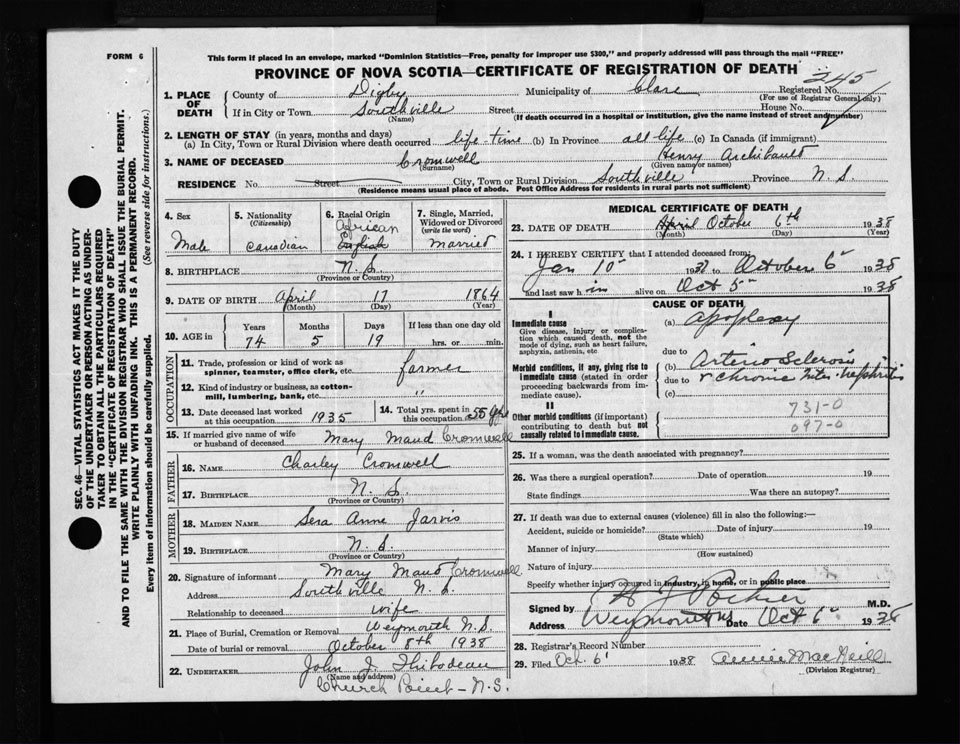 FORM 6
This form if placed in an envelope, marked "Dominion Statistics—Free, penalty for improper use $300," and properly addressed will pass through the mail "FREE"
PROVINCE OF NOVA SCOTIA—CERTIFICATE OF REGISTRATION OF DEATH
245
1. PLACE OF DEATH
County of Digby Municipality of Clare Registered No.
(For use of Registrar General only)
If in City or Town Southville Street House No.
(Name) (If death occurred in a hospital or institution, give the name instead of street and number)
2. LENGTH OF STAY (in years, months and days)
(a) In City, Town or Rural Division where death occurred life-time (b) In Province all life (c) In Canada (if immigrant)
3. NAME OF DECEASED Cromwell Henry Archibauld
(Surname) (Given name or names)
RESIDENCE No. Street City, Town or Rural Division Southville Province N. S.
(Residence means usual place of abode. Post Office Address for residents in rural parts not sufficient)
4. Sex
Male
5. Nationality
(Citizenship)
Canadian
6. Racial Origin
African
English
7. Single, Married, Widowed or Divorced
(write the word)
married
8. BIRTHPLACE N. S.
(Province or Country)
9. DATE OF BIRTH April 17 1864
(Month) (Day) (Year)
10. AGE in
Years Months Days If less than one day old
74 5 19 hrs. or min.
OCCUPATION
11. Trade, profession or kind of work as spinner, teamster, office clerk, etc. farmer
12. Kind of industry or business, as cotton-mill, lumbering, bank, etc. "
13. Date deceased last worked at this occupation 1935
14. Total yrs. spent in this occupation 55 yrs
15. If married give name of wife or husband of deceased Mary Maud Cromwell
FATHER
16. NAME Charley Cromwell
17. BIRTHPLACE N. S.
(Province or Country)
MOTHER
18. MAIDEN NAME Sera Anne Jarvis
19. BIRTHPLACE N. S.
(Province or Country)
20. Signature of informant Mary Maud Cromwell
Address Southville N. S.
Relationship to deceased wife
21. Place of Burial, Cremation or Removal Weymouth N. S.
Date of burial or removal October 8th 1938
22. UNDERTAKER John J. Thibodeau
(Name and address)
Church Point - N. S.
MEDICAL CERTIFICATE OF DEATH
23. DATE OF DEATH April October 6th 1938
(Month) (Day) (Year)
24. I HEREBY CERTIFY that I attended deceased from
Jan 10 1938 to October 6 1938
and last saw him alive on Oct 5 1938
CAUSE OF DEATH
I
Immediate cause
Give disease, injury or complication which caused death, not the mode of dying, such as heart failure, asphyxia, asthenia, etc
(a) Apoplexy
due to
Morbid conditions, if any, giving rise to immediate cause (stated in order proceeding backwards from immediate cause).
(b) Arterio Sclerosis
due to & chronic Inter. nephritis
(c)
II
Other morbid conditions (if important) contributing to death but not causally related to immediate cause.
731-0
097-0
25. If a woman, was the death associated with pregnancy?
26. Was there a surgical operation? Date of operation 19
State findings Was there an autopsy?
27. If death was due to external causes (violence) fill in also the following:—
Accident, suicide or homicide? Date of injury 19
(State which)
Manner of injury
(How sustained)
Nature of injury
Specify whether injury occurred in industry, in home, or in public place
Signed by M.D.
Address Weymouth NS Date Oct 6 1938
28. Registrar's Record Number
29. Filed Oct. 6 1938 Annie MacNeill
(Division Registrar)
SEC. 46—VITAL STATISTICS ACT MAKES IT THE DUTY
OF THE UNDERTAKER OR PERSON ACTING AS UNDER-
TAKER TO OBTAIN ALL THE PARTICULARS REQUIRED
IN THE "CERTIFICATE OF REGISTRATION OF DEATH"
AND TO FILE THE SAME WITH THE DIVISION REGISTRAR WHO SHALL ISSUE THE BURIAL PERMIT.
WRITE PLAINLY WITH UNFADING INK. THIS IS A PERMANENT RECORD.
Every item of information should be carefully supplied. (See reverse side for instructions.)